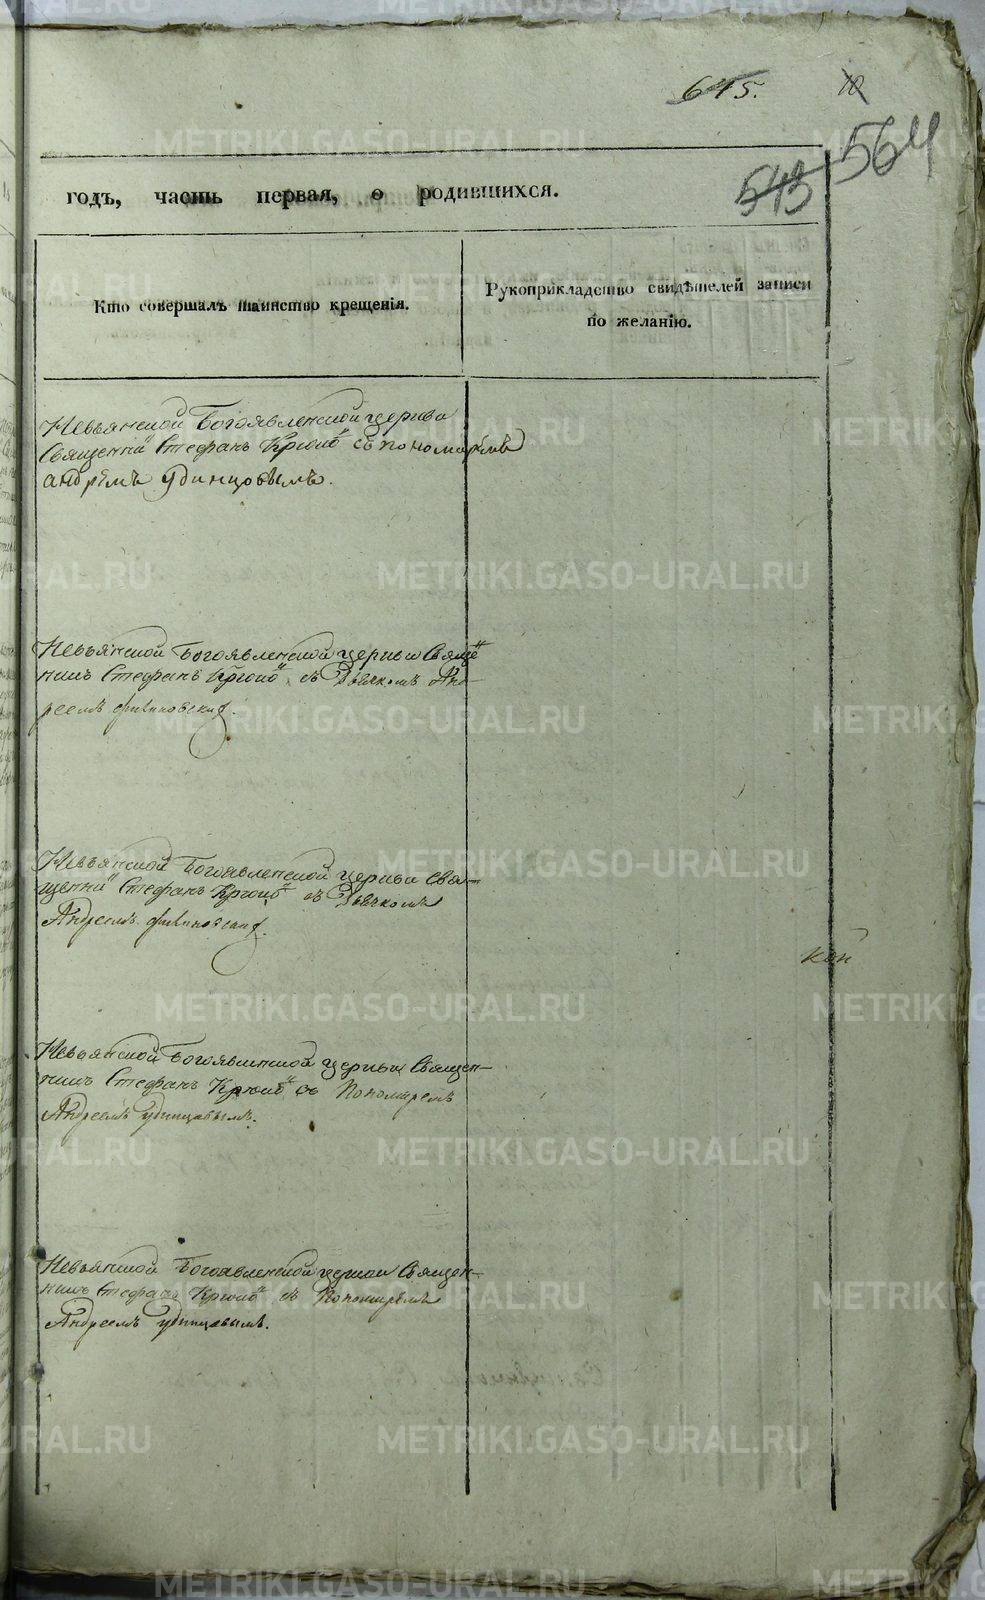 645.
10
543 564
годъ, часть первая, о родившихся.
Кто совершалъ таинство крещенія.
Рукоприкладство свидѣтелей записи
по желанію.
Невьянской Богоявленской церкви
Священни Стефанъ с пономарёмъ
андрѣемъ Удинцовымъ.
Невьянской Богоявленской церкви Свяще
нникъ Стефанъ съ Дьячкомъ Анд
реемъ
Невьянской Богоявленской церкви Свя-
щенни Стефанъ съ Дьячкомъ
Андреемъ
Невьянской Богоявленской церкви Священ-
никъ Стефанъ съ Пономаремъ
Андреемъ удинцовымъ.
Невьянской Богоявленской церкви Священ-
никъ Стефанъ съ Пономарёмъ
Андреемъ удинцовымъ.
METRIKI.GASO-URAL.RU